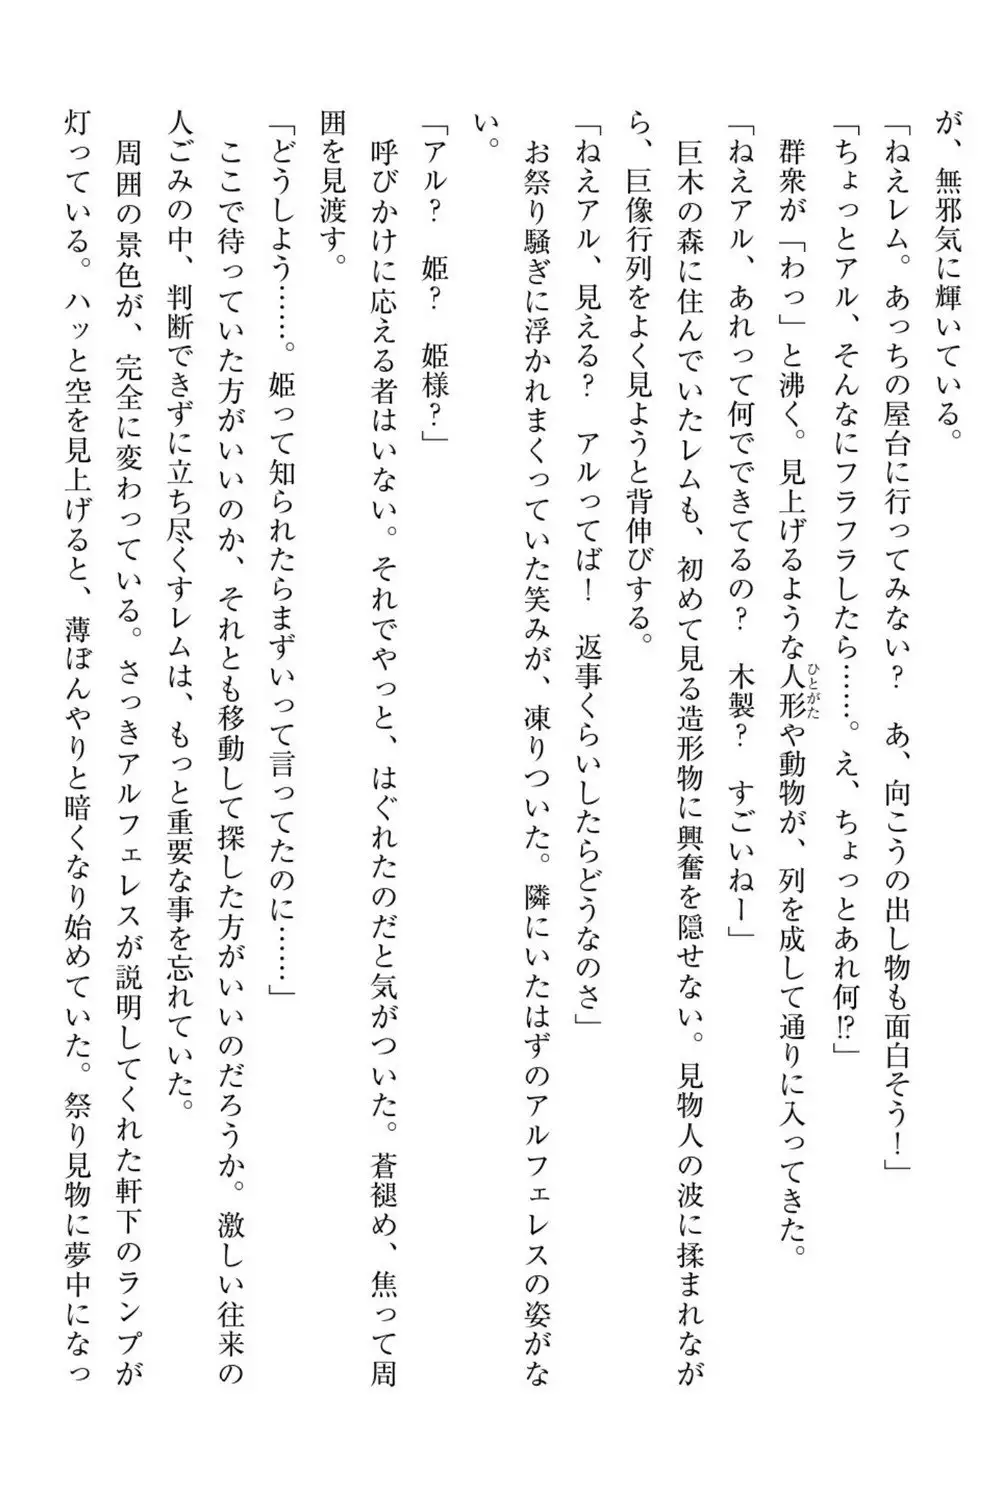 が、無邪気に輝いている。
「ねえレム。あっちの屋台に行ってみない？　あ、向こうの出し物も面白そう！」
「ちょっとアル、そんなにフラフラしたら……。え、ちょっとあれ何⁉」
　群衆が「わっ」と沸く。見上げるような人形や動物が、列を成して通りに入ってきた。
ひとがた
「ねえアル、あれって何でできてるの？　木製？　すごいねー」
　巨木の森に住んでいたレムも、初めて見る造形物に興奮を隠せない。見物人の波に揉まれなが
ら、巨像行列をよく見ようと背伸びする。
「ねえアル、見える？　アルってば！　返事くらいしたらどうなのさ」
　お祭り騒ぎに浮かれまくっていた笑みが、凍りついた。隣にいたはずのアルフェレスの姿がな
い。
「アル？　姫？　姫様？」
　呼びかけに応える者はいない。それでやっと、はぐれたのだと気がついた。蒼褪め、焦って周
囲を見渡す。
「どうしよう……。姫って知られたらまずいって言ってたのに……」
　ここで待っていた方がいいのか、それとも移動して探した方がいいのだろうか。激しい往来の
人ごみの中、判断できずに立ち尽くすレムは、もっと重要な事を忘れていた。
　周囲の景色が、完全に変わっている。さっきアルフェレスが説明してくれた軒下のランプが
灯っている。ハッと空を見上げると、薄ぼんやりと暗くなり始めていた。祭り見物に夢中になっ